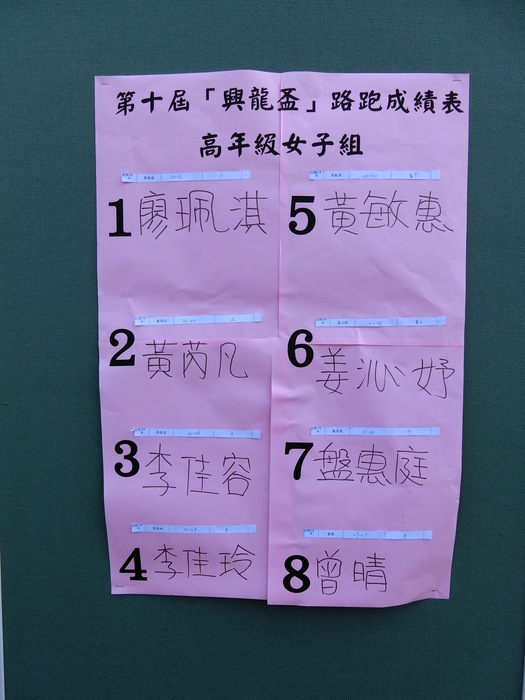 第十屆「興龍盃」路跑成績表
高年級女子組
1 廖珮淇
2 黃芮凡
3 李佳容
4 李佳玲
5 黃敏惠
6 姜沁妤
7 盤惠庭
8 曾晴